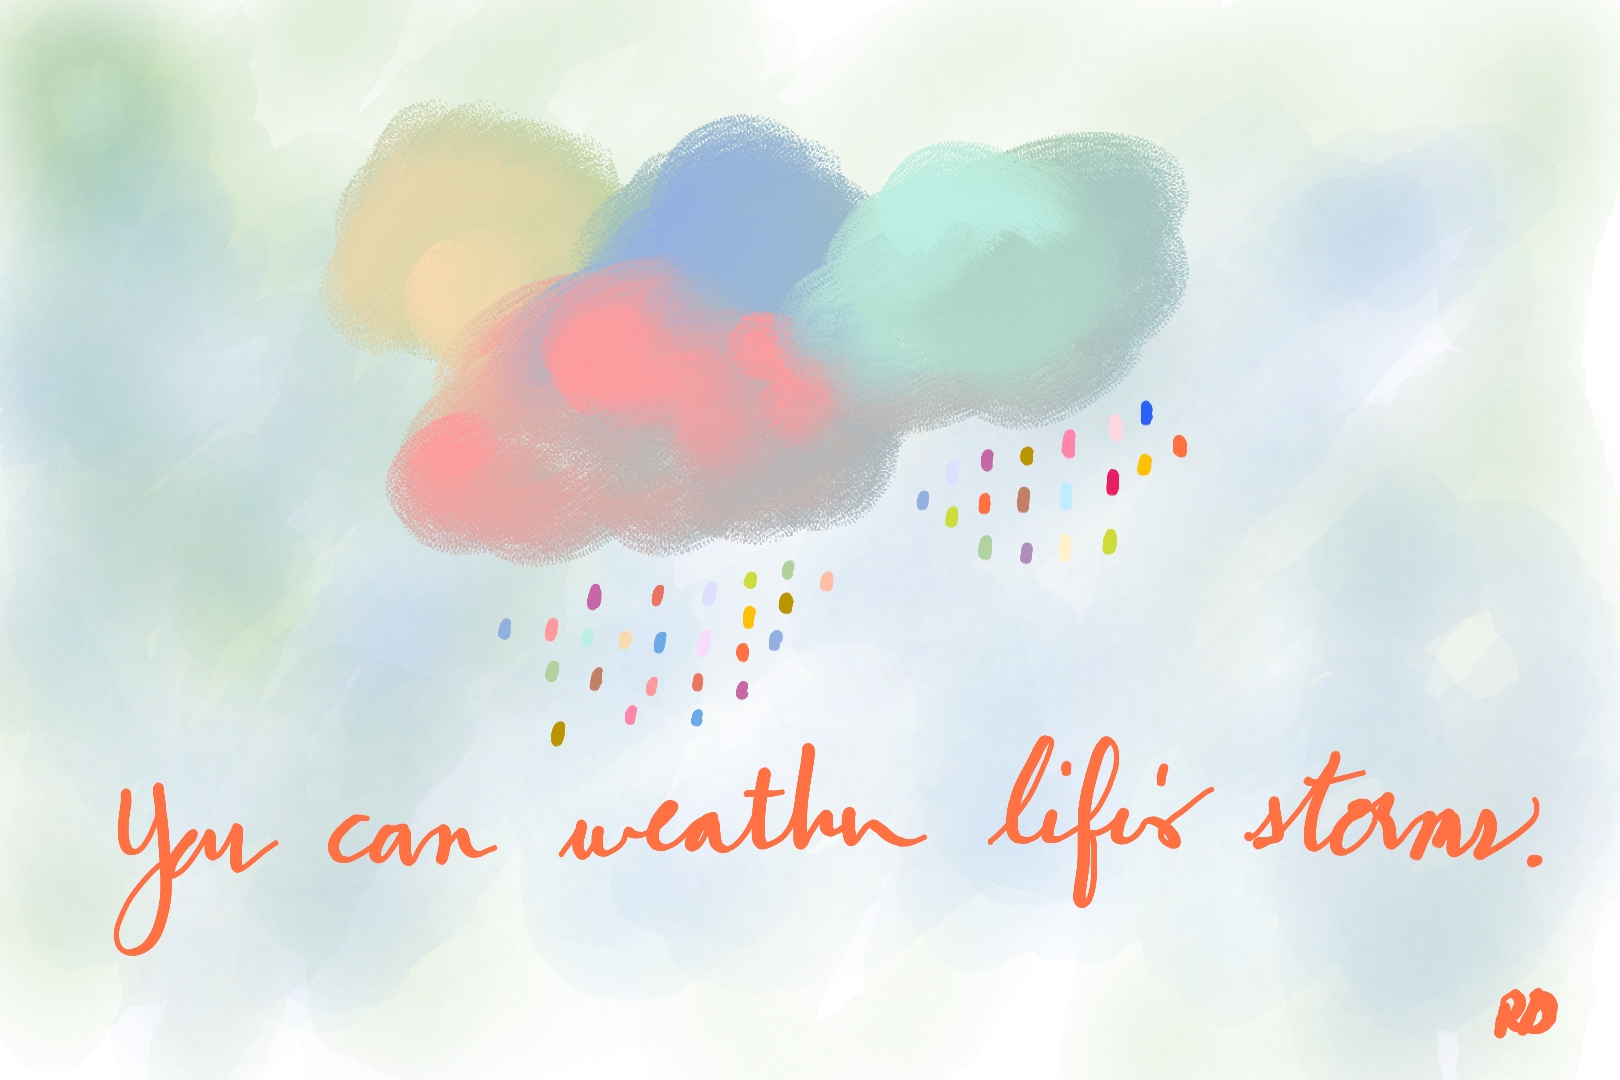 You can weather life's storms.
RD